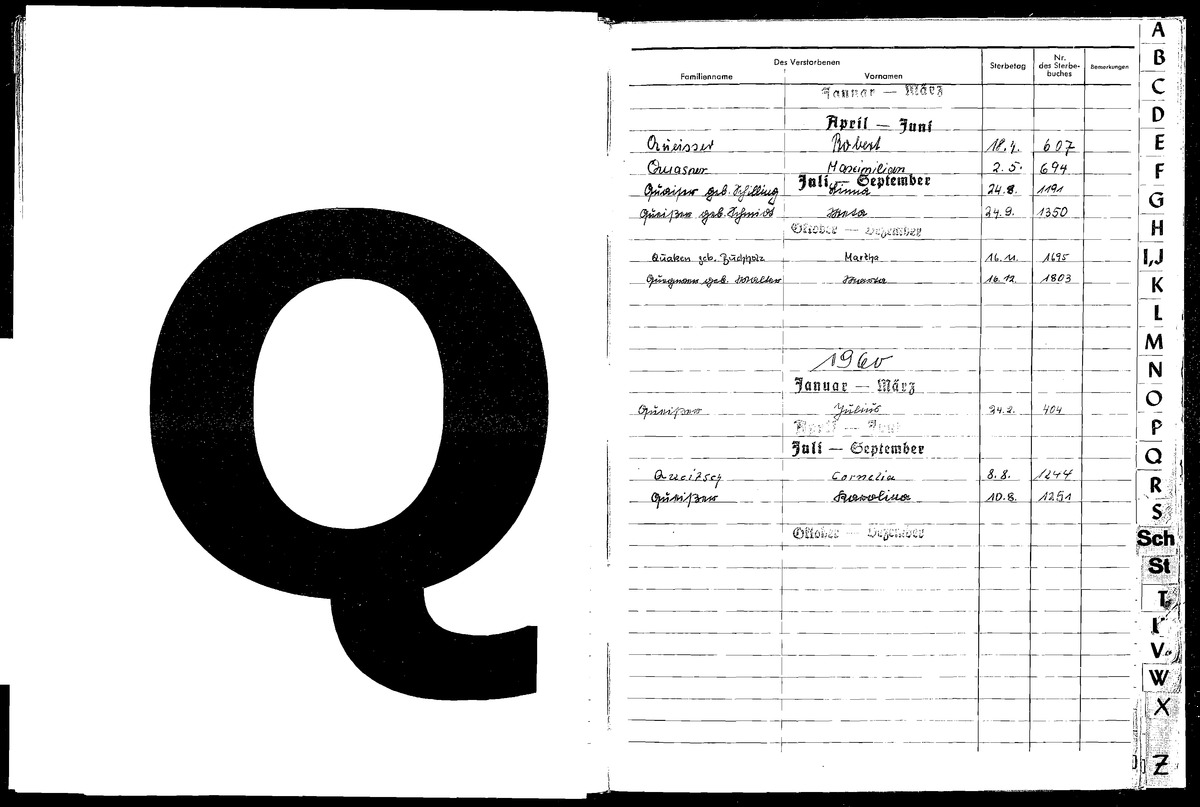 Q
Des Verstorbenen
Familienname Vornamen Sterbetag Nr. des Sterbebuches Bemerkungen
Januar — März
April — Juni
Queisser Robert 18.4. 607
Quasner Maximilian 2.5. 694
Juli — September
Queißer geb. Schilling Minna 24.8. 1191
Queißer geb. Schmidt Meta 24.9. 1350
Oktober — Dezember
Quaken geb. Buchholz Martha 16.11. 1695
geb. Walter 16.12. 1803
1960
Januar — März
Queißer Julius 24.2. 404
April — Juni
Juli — September
Queitzsch Cornelia 8.8. 1244
Queißer Karolina 10.8. 1251
Oktober — Dezember
A
B
C
D
E
F
G
H
I,J
K
L
M
N
O
P
Q
R
S
Sch
St
T
V
W
X
Z